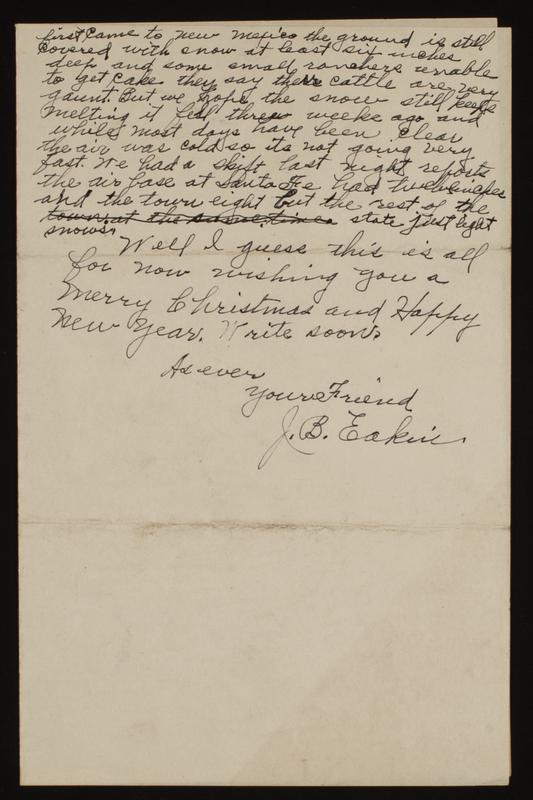 first came to new mexico the ground is still
covered with snow at least six inches
deep and some small ranchers unable
to get cake they say their cattle are very
gaunt. But we hope the snow still keeps
melting it fell three weeks ago and
while most days have been clear
the air was cold so its not going very
fast. We had a skift last night reports
the air base at Santa Fe had twelve inches
and the town eight but the rest of the
town at the same time state just light
snows.
Well I guess this is all
for now wishing you a
Merry Christmas and Happy
New Year. Write soon.
As ever
Your Friend
J. B. Eakin.